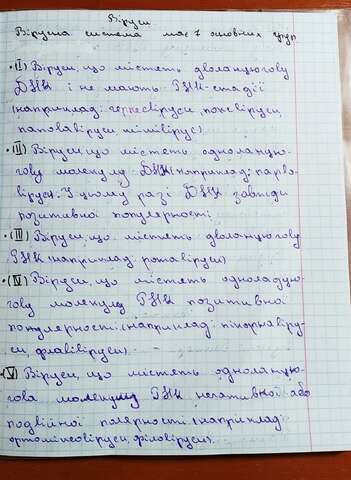 Віруси
Вірусна система має 7 основних груп
• (I) Віруси, що містять дволанцюгову
ДНК і не мають РНК-стадії
(наприклад: герпесвіруси, поксвіруси,
паповавіруси, мімівірус)
• (II) Віруси, що містять одноланцю-
гову молекулу ДНК (наприклад: парво-
віруси). У цьому разі ДНК завжди
позитивної популярності.
• (III) Віруси, що містять дволанцюгову
РНК (наприклад ротавіруси)
• (IV) Віруси, що містять одноланцю-
гову молекулу РНК позитивної
популярності (наприклад: пікорнавіру-
си, флавівіруси). -
• (V) Віруси, що містять одноланцю-
гова молекулу РНК негативної або
подвійної полярності (наприклад:
ортоміксовіруси, філовіруси).